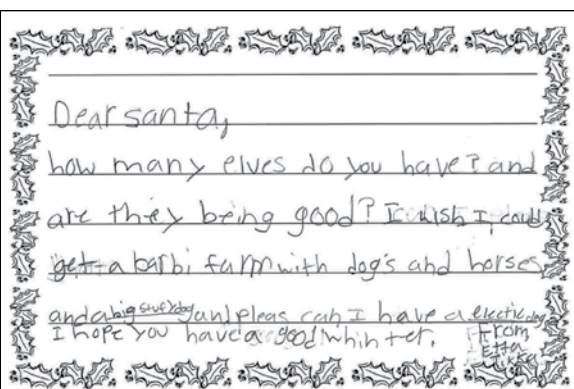 Dear santa,
how many elves do you have? and
are they being good? I wish I could
get a barbi farm with dog's and horses
and a big stuf dog and pleas can I have a electic dog
I hope you have a good whinter.
From,
Etta